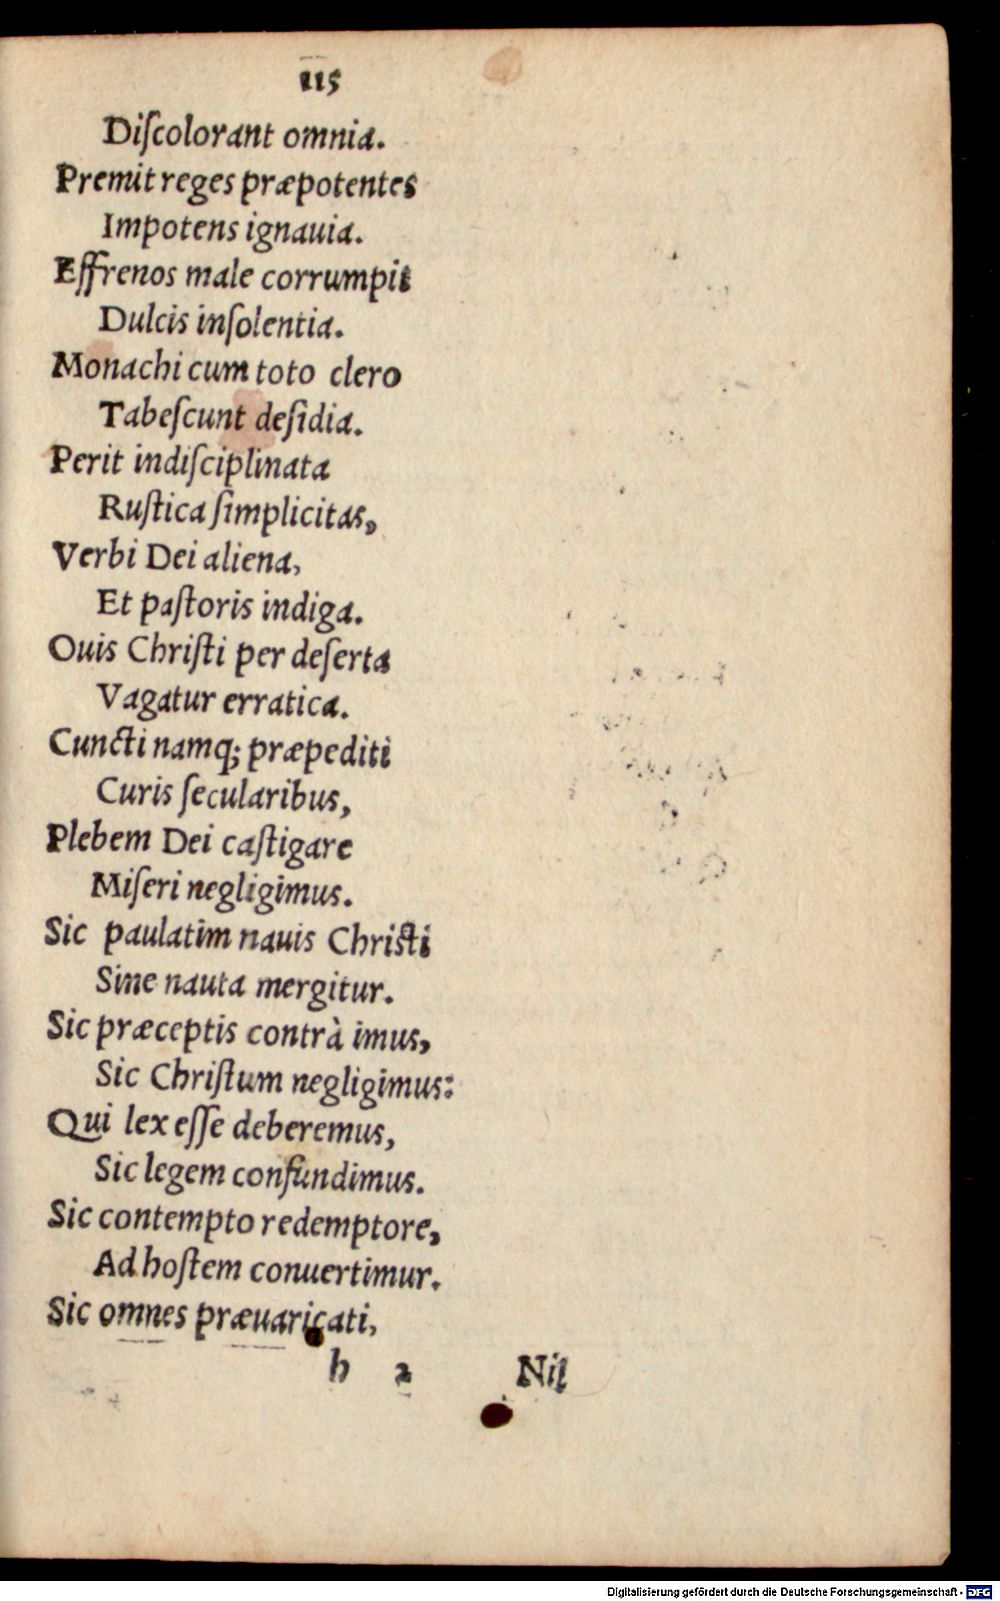 115
Diſcolorant omnia.
Premit reges præpotentes
Impotens ignauia.
Effrenos male corrumpit
Dulcis inſolentia.
Monachi cum toto clero
Tabeſcunt deſidia.
Perit indiſciplinata
Ruſtica ſimplicitas,
Verbi Dei aliena,
Et paſtoris indiga.
Ouis Chriſti per deſerta
Vagatur erratica.
Cuncti namq; præpediti
Curis ſecularibus,
Plebem Dei caſtigare
Miſeri negligimus.
Sic paulatim nauis Chriſti
Sine nauta mergitur.
Sic præceptis contrà imus,
Sic Chriſtum negligimus:
Qui lex eſſe deberemus,
Sic legem confundimus.
Sic contempto redemptore,
Ad hoſtem conuertimur.
Sic omnes præuaricati,
h 2 Nil
Digitalisierung gefördert durch die Deutsche Forschungsgemeinschaft - DFG